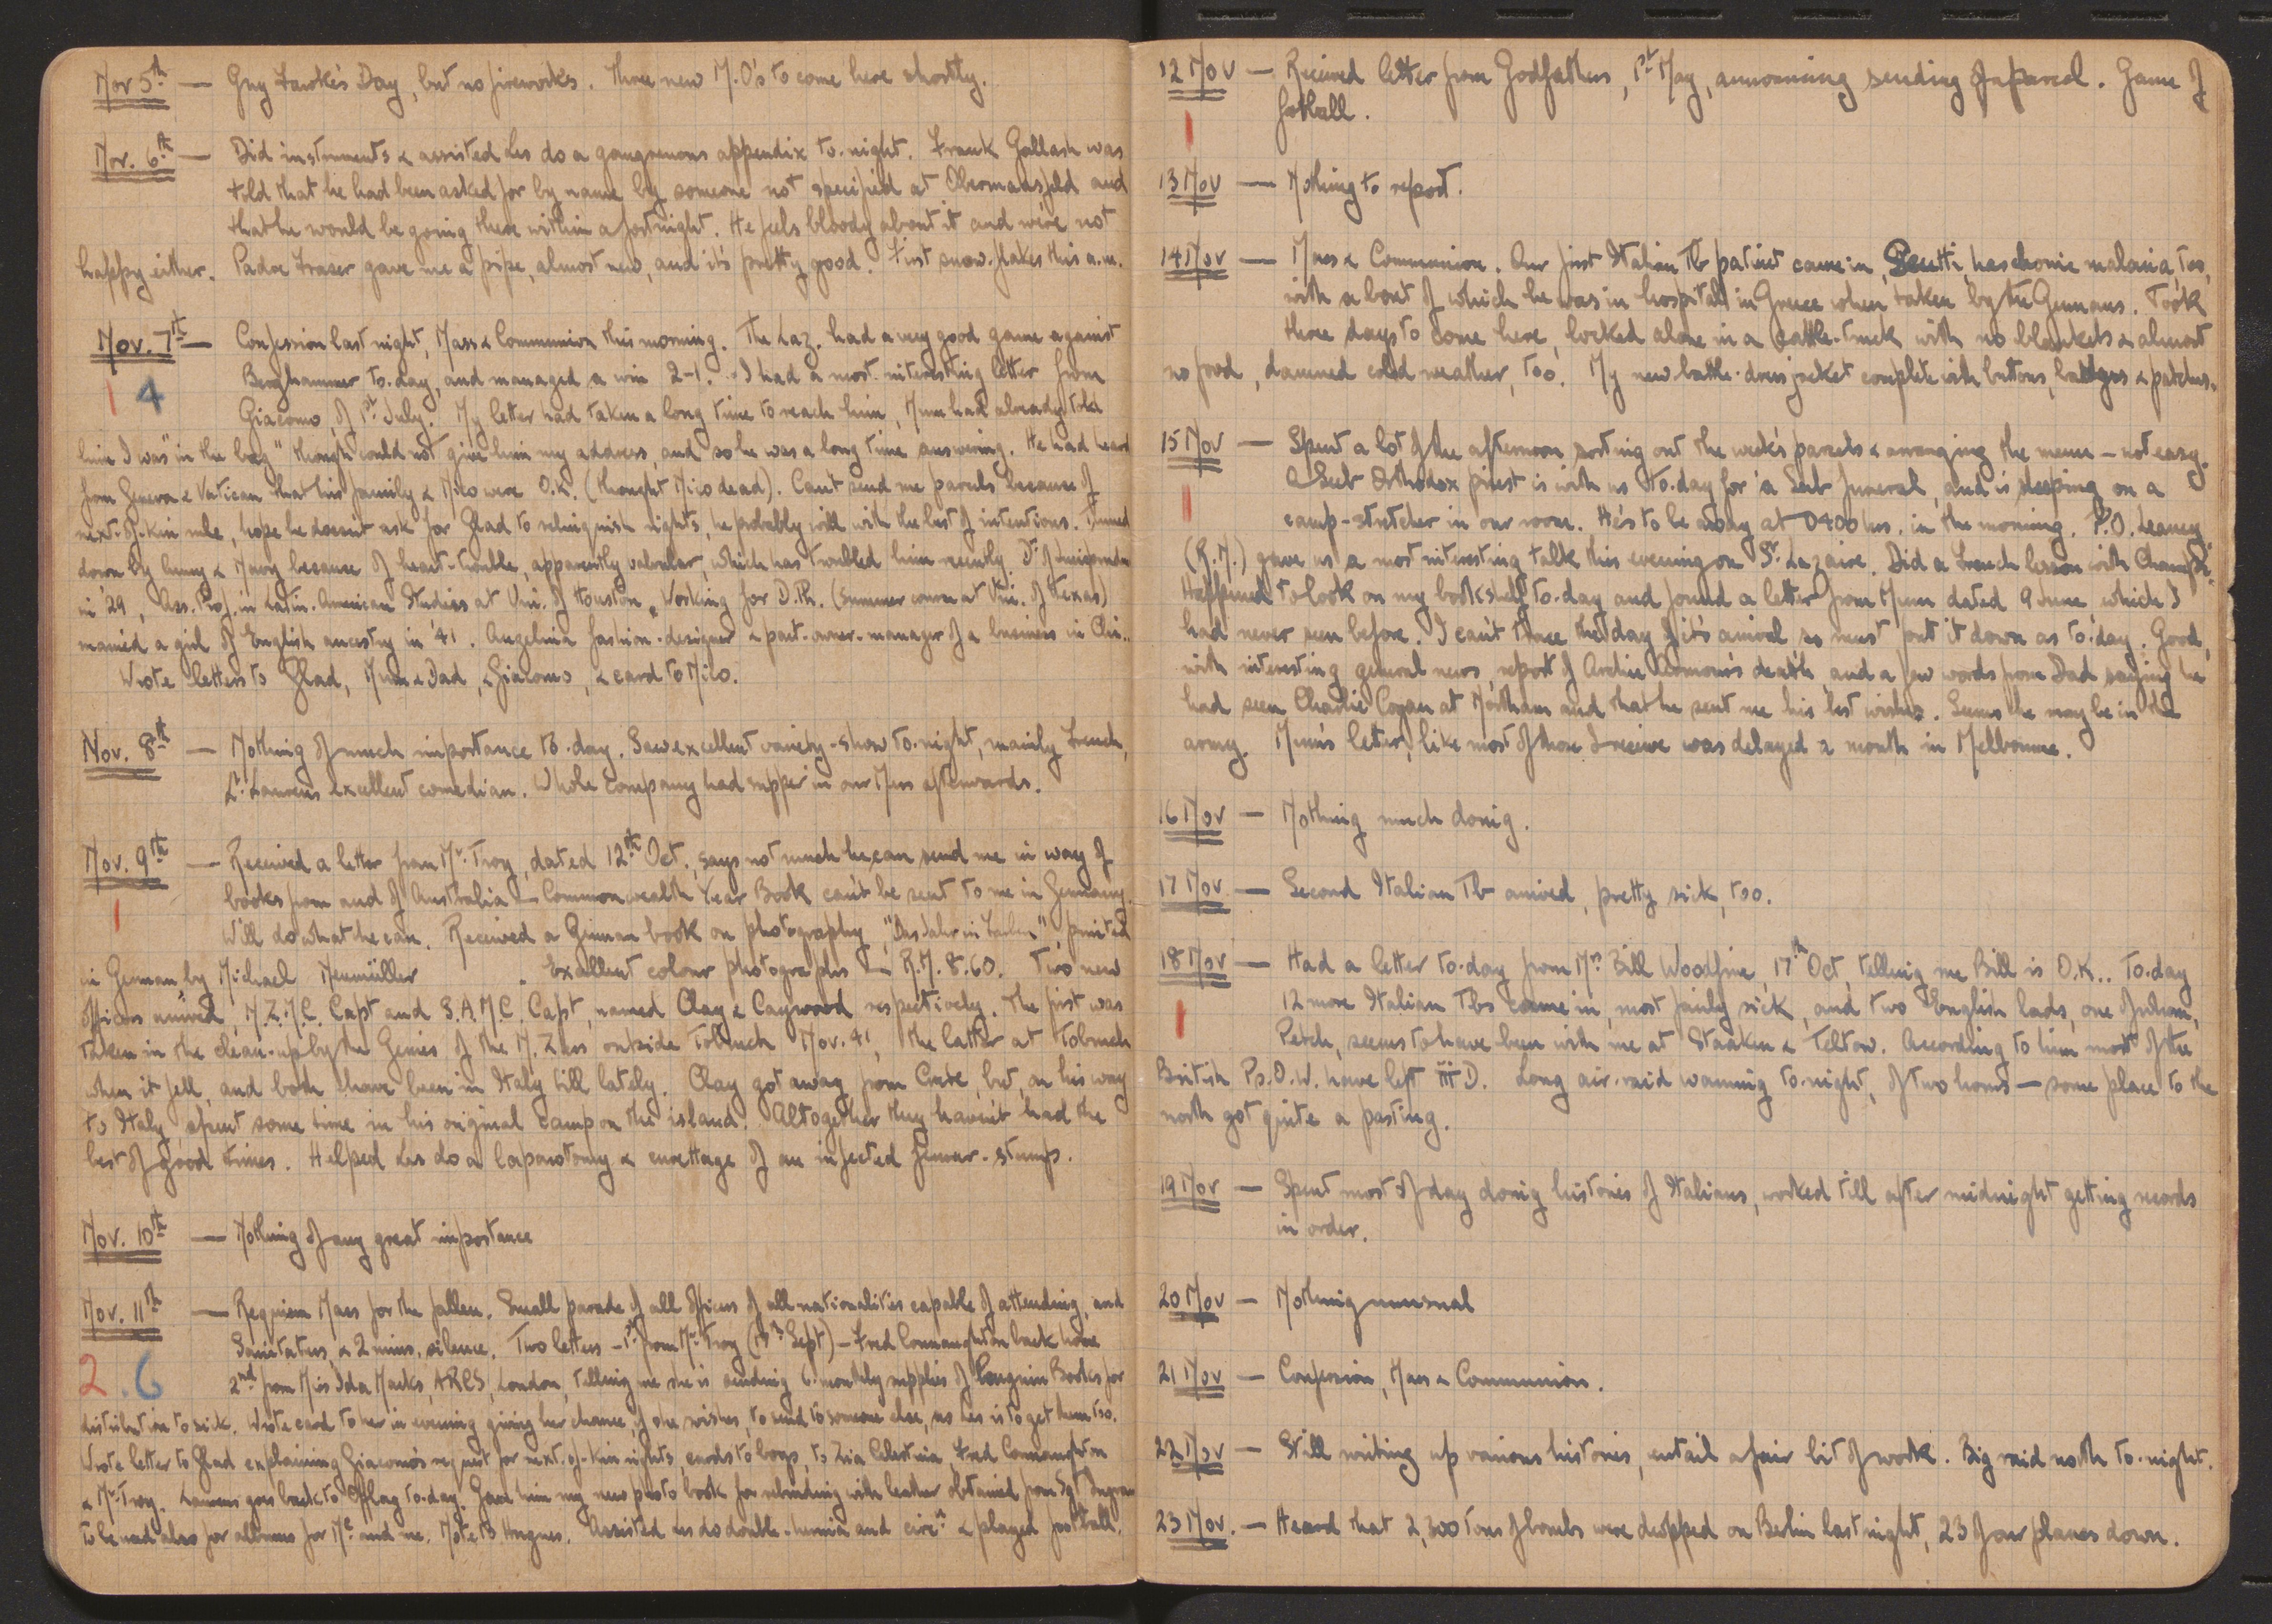 Nov 5th — Guy Fawke's Day, but no fireworks. Three new M.O's to come here shortly.
Nov. 6th — Did instruments & assisted Les do a gangrenous appendix to-night. Frank Gallash was
told that he had been asked for by name by someone not specified at Obermansfeld and
that he would be going there within a fortnight. He feels bloody about it and we're not
happy either. Padre Fraser gave me a pipe, almost new, and it's pretty good. First snow-flakes this a.m.
Nov. 7th — Confession last night, Mass & Communion this morning. The Laz. had a very good game against
Berghammer to-day, and managed a win 2-1. I had a most interesting letter from
1 4
Giacomo, of 1st July. My letter had taken a long time to reach him, Mum had already told
him I was "in the bag" though could not give him my address, and so he was a long time answering. He had heard
from Geneva & Vatican that his family & Mico were O.K. (thought Mico dead). Can't send me parcels because of
next-of-kin rule, hope he doesn't ask for Glad to relinquish rights, he probably will with the best of intentions. Turned
down by & Navy because of heart-trouble, apparently valvular, which has troubled him recently. Dr. of
in '29, Ass. Prof. in Latin-American Studies at Uni. of Houston, Working for D.Ph. (summer course at Uni. of Texas)
married a girl of English ancestry in '41. Angelina fashion-designer & part-owner-manager of a business in
Wrote letters to Glad, Mum & Dad, & Giacomo, & card to Mico.
Nov. 8th — Nothing of much importance to-day. Saw excellent variety-show to-night, mainly French,
Lt. Laurens excellent comedian. Whole company had supper in our Mess afterwards.
Nov. 9th — Received a letter from Mr. Troy, dated 12th Oct, says not much he can send me in way of
books from and of Australia — Commonwealth Year Book can't be sent to me in Germany.
1
Will do what he can. Received a German book on photography, "Das Jahr in Farben", printed
in German, by Michael Neumüller. Excellent colour photographs — R.M. 8.60. Two new
officers arrived, N.Z.M.C. Capt and S.A.M.C. Capt, named Clay & Caywood respectively. The first was
taken in the clean-up by the Gerries of the N.Zers outside Tobruch Nov. 41, the latter at Tobruch
when it fell, and both have been in Italy till lately. Clay got away from Crete, but, on his way
to Italy, spent some time in his original camp on the island. Altogether they haven't had the
best of good times. Helped Les do a laparotomy & curettage of an infected femur-stump.
Nov. 10th — Nothing of any great importance
Nov. 11th — Requiem Mass for the fallen. Small parade of all officers of all nationalities capable of attending, and
Sanitaters, & 2 mins. silence. Two letters — 1st from Mr. Troy (13th Sept) — Fred Connaughton back home
2.6
2nd from Miss Ida Marks, ARCS, London, telling me she is sending 6 monthly supplies of Penguin Books for
distribution to sick. Wrote card to her in evening giving her chance, if she wishes, to send to someone else, as Les is to get them too.
Wrote letter to Glad explaining Giacomo's request for next-of-kin rights, cards to boys, to Zia Celestina, Fred Connaughton
& Mr. Troy. Laurens goes back to Offlag to-day. Gave him my new photo book for rebinding with leather obtained from Sgt Ingram
to be used also for albums for Mc and me. Note to Hugues. Assisted Les do double-hernia and circn & played football.
12 Nov — Received letter from Godfathers, 1st May, announcing sending of a parcel. Game of
football.
1
13 Nov — Nothing to report.
14 Nov — Mass & Communion. Our first Italian Tb patient came in, has chronic malaria too,
with a bout of which he was in hospital in Greece when taken by the Germans. Took
three days to come here, locked alone in a cattle-truck with no blankets & almost
no food, damned cold weather, too. My new battle-dress jacket complete with buttons, badges & patches.
15 Nov — Spent a lot of the afternoon sorting out the week's parcels & arranging the menu — not easy.
A Serb Orthodox priest is with us to-day for a Serb funeral, and is sleeping on a
1
camp-stretcher in our room. He's to be away at 0400 hrs. in the morning. P.O. Leaney
(R.N.) gave us a most interesting talk this evening on St. Lazaire. Did a French lesson with
Happened to look on my bookshelf to-day and found a letter from Mum dated 9 June which I
had never seen before. I can't trace the day of it's arrival so must put it down as to-day. Good,
with interesting general news, report of Archie death, and a few words from Dad saying he
had seen Charlie Cogan at Northam and that he sent me his best wishes. Seems he may be in the
army. Mum's letter, like most of those I receive was delayed a month in Melbourne.
16 Nov — Nothing much doing.
17 Nov — Second Italian Tb arrived, pretty sick, too.
18 Nov — Had a letter to-day from Mrs Bill Woodfine, 17th Oct, telling me Bill is O.K.. To-day
12 more Italian Tbs came in, most fairly sick, and two English lads, one of whom,
1
Petch, seems to have been with me at Staaken & Teltow. According to him most of the
British Ps.O.W. have left III D. Long air-raid warning to-night, of two hours — some place to the
north got quite a pasting.
19 Nov — Spent most of day doing histories of Italians, worked till after midnight getting records
in order.
20 Nov — Nothing unusual
21 Nov — Confession, Mass & Communion.
22 Nov — Still writing up various histories, entail a fair bit of work. Big raid north to-night.
23 Nov. — Heard that 2,300 tons of bombs were dropped on Berlin last night, 23 of our planes down.